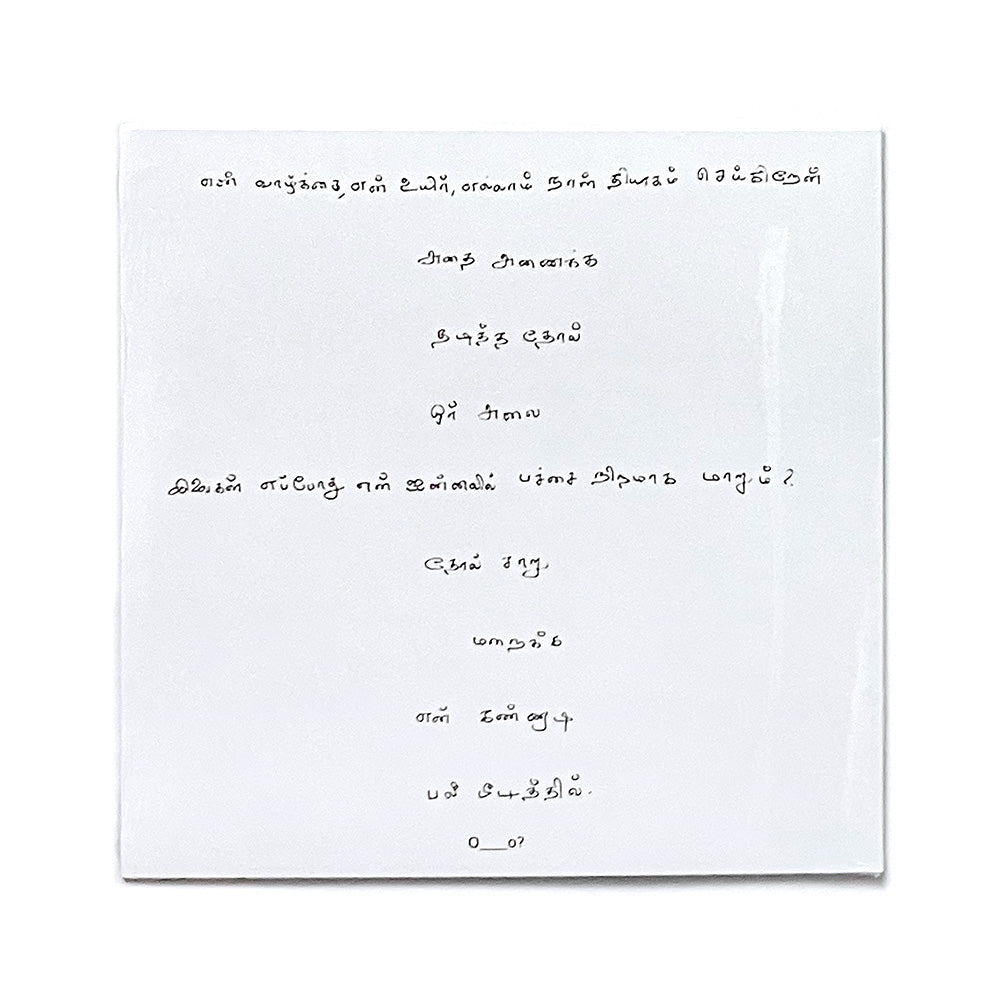 என் வாழ்க்கை, என் உயிர், எல்லாம் நான் தியாகம் செய்கிறேன்
அதை அணைக்க
தடித்த தோல்
ஓர் அலை
எப்போது என் பச்சை நிறமாக மாறும்?
தோல் சாறு
மறைக்க
என் கண்ணடி
பலி பீடத்தில்.
O___o?